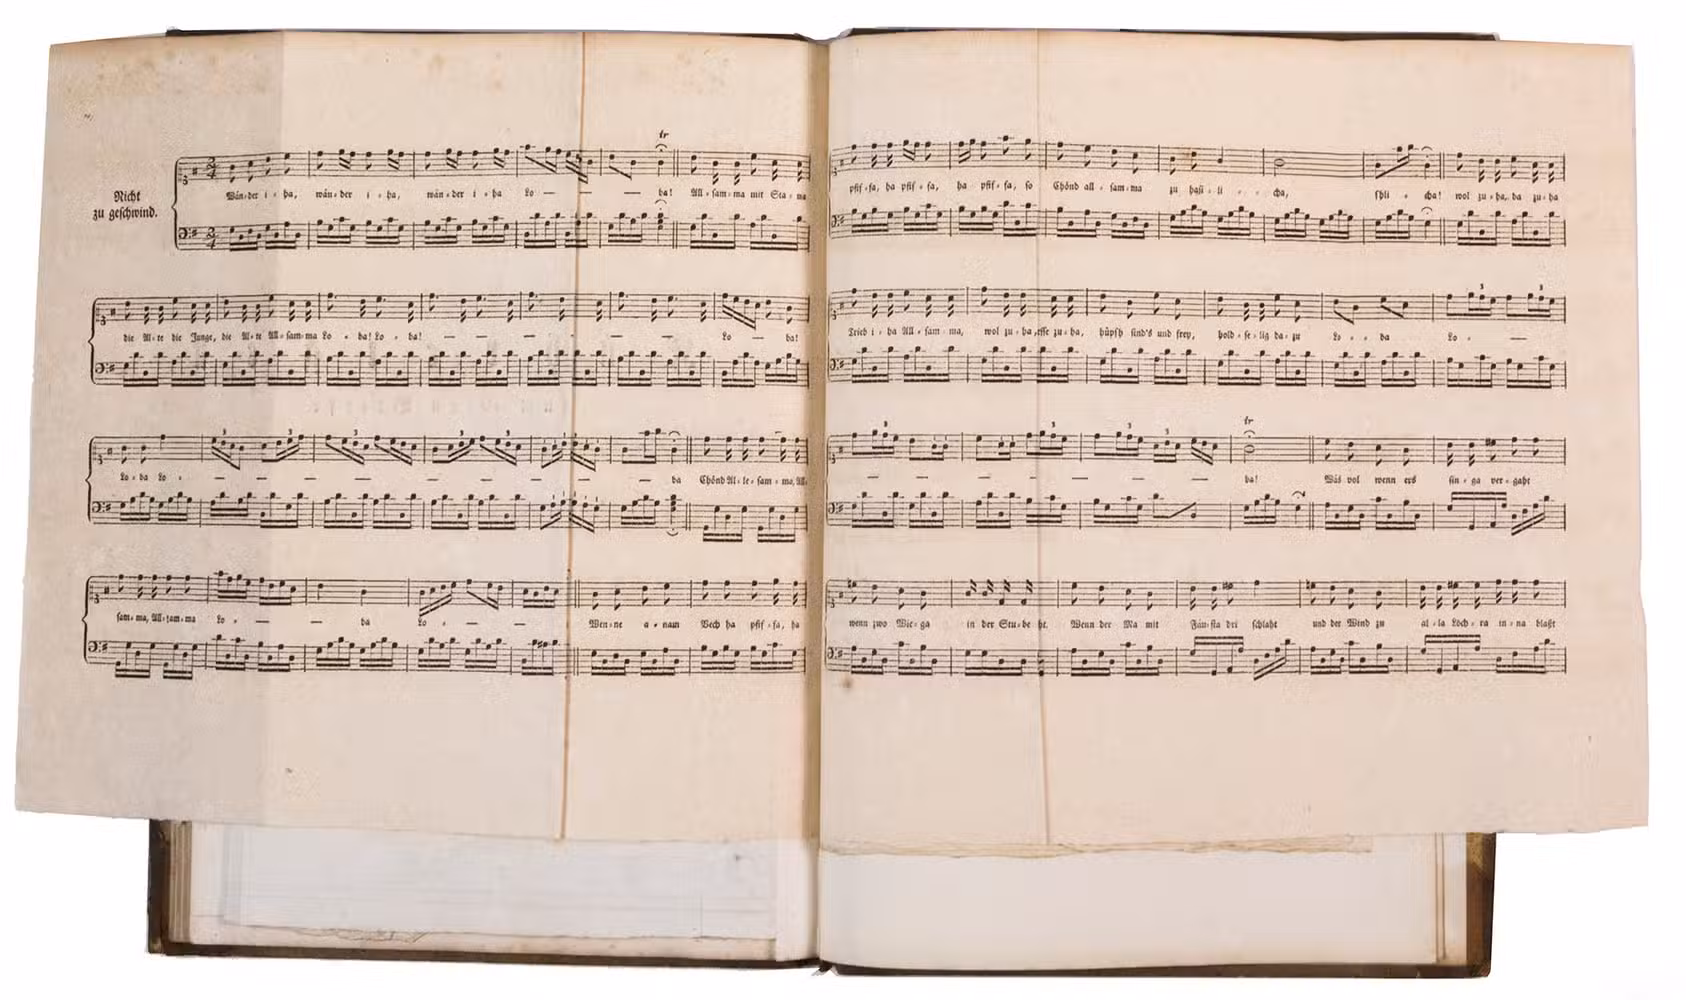 Nicht
zu geschwind.
tr
Wän=der i=ha, wän=der i=ha, wän=der i=ha Lo — — — ba! All=sam=ma mit Sta=ma
pfif=fa, ha pfif=fa, ha pfif=fa, so Chönd all=sam=ma zu hasi=li = cha, = cha! wol zu=ha, da zu=ha
3 3
die Al=te die Junge, die Al=te All=sam=ma Lo = ba! Lo = ba! — — — — — — Lo — ba!
Trieb i=ha All=sam=ma, wol zu=ha, zu=ha, hüpsch sind's und frey, hold=se=lig da=zu Lo = = ba Lo = —
3 3 3 3 3 3 3 3 3 tr
Lo=ba Lo = — — — — — — — — ba Chönd Al=le=sam=ma, All=
— — — — — — — ba! Wäs wol wenn ers sin=ga ver=gaht
sam=ma, All=sam=ma Lo = — — ba Lo = — — Wen=ne a=nam Vech ha pfif=fa, ha
wenn zwo Wie=ga in der Stu=be Wenn der Ma mit Fäu=sta dri schlaht und der Wind zu al=la Löch=ra in=na blaßt